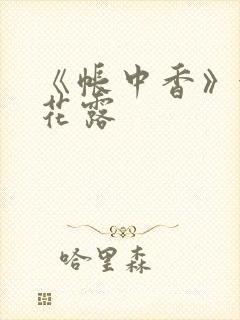 《帐中香》
花露
哈里森